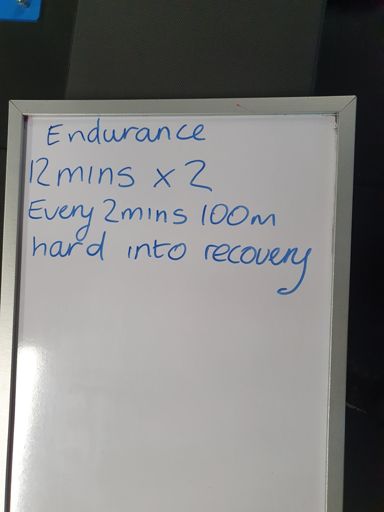 Endurance
12 mins x 2
Every 2mins 100m
hard into recovery